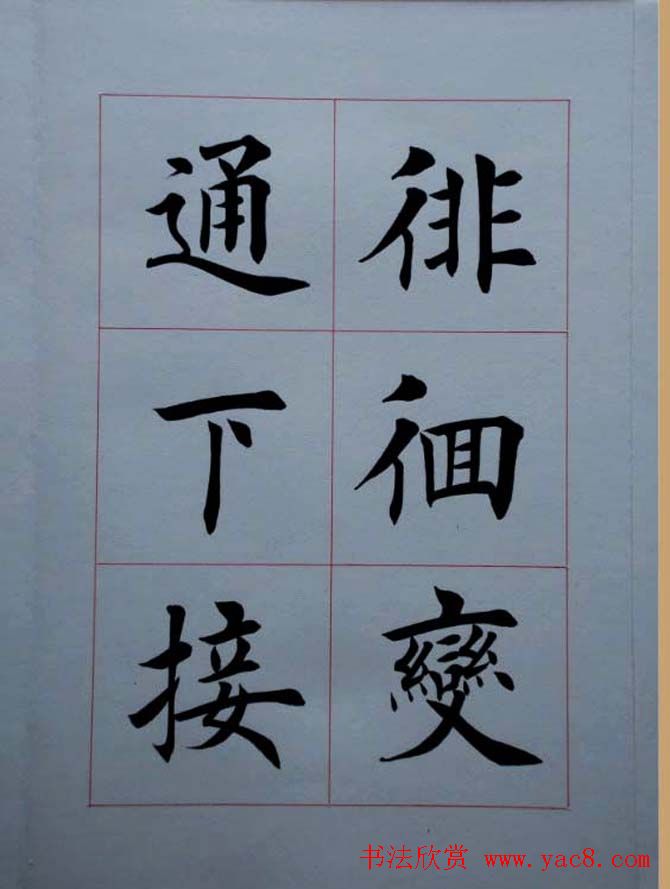 徘徊變
通下接
书法欣赏 www.yac8.com